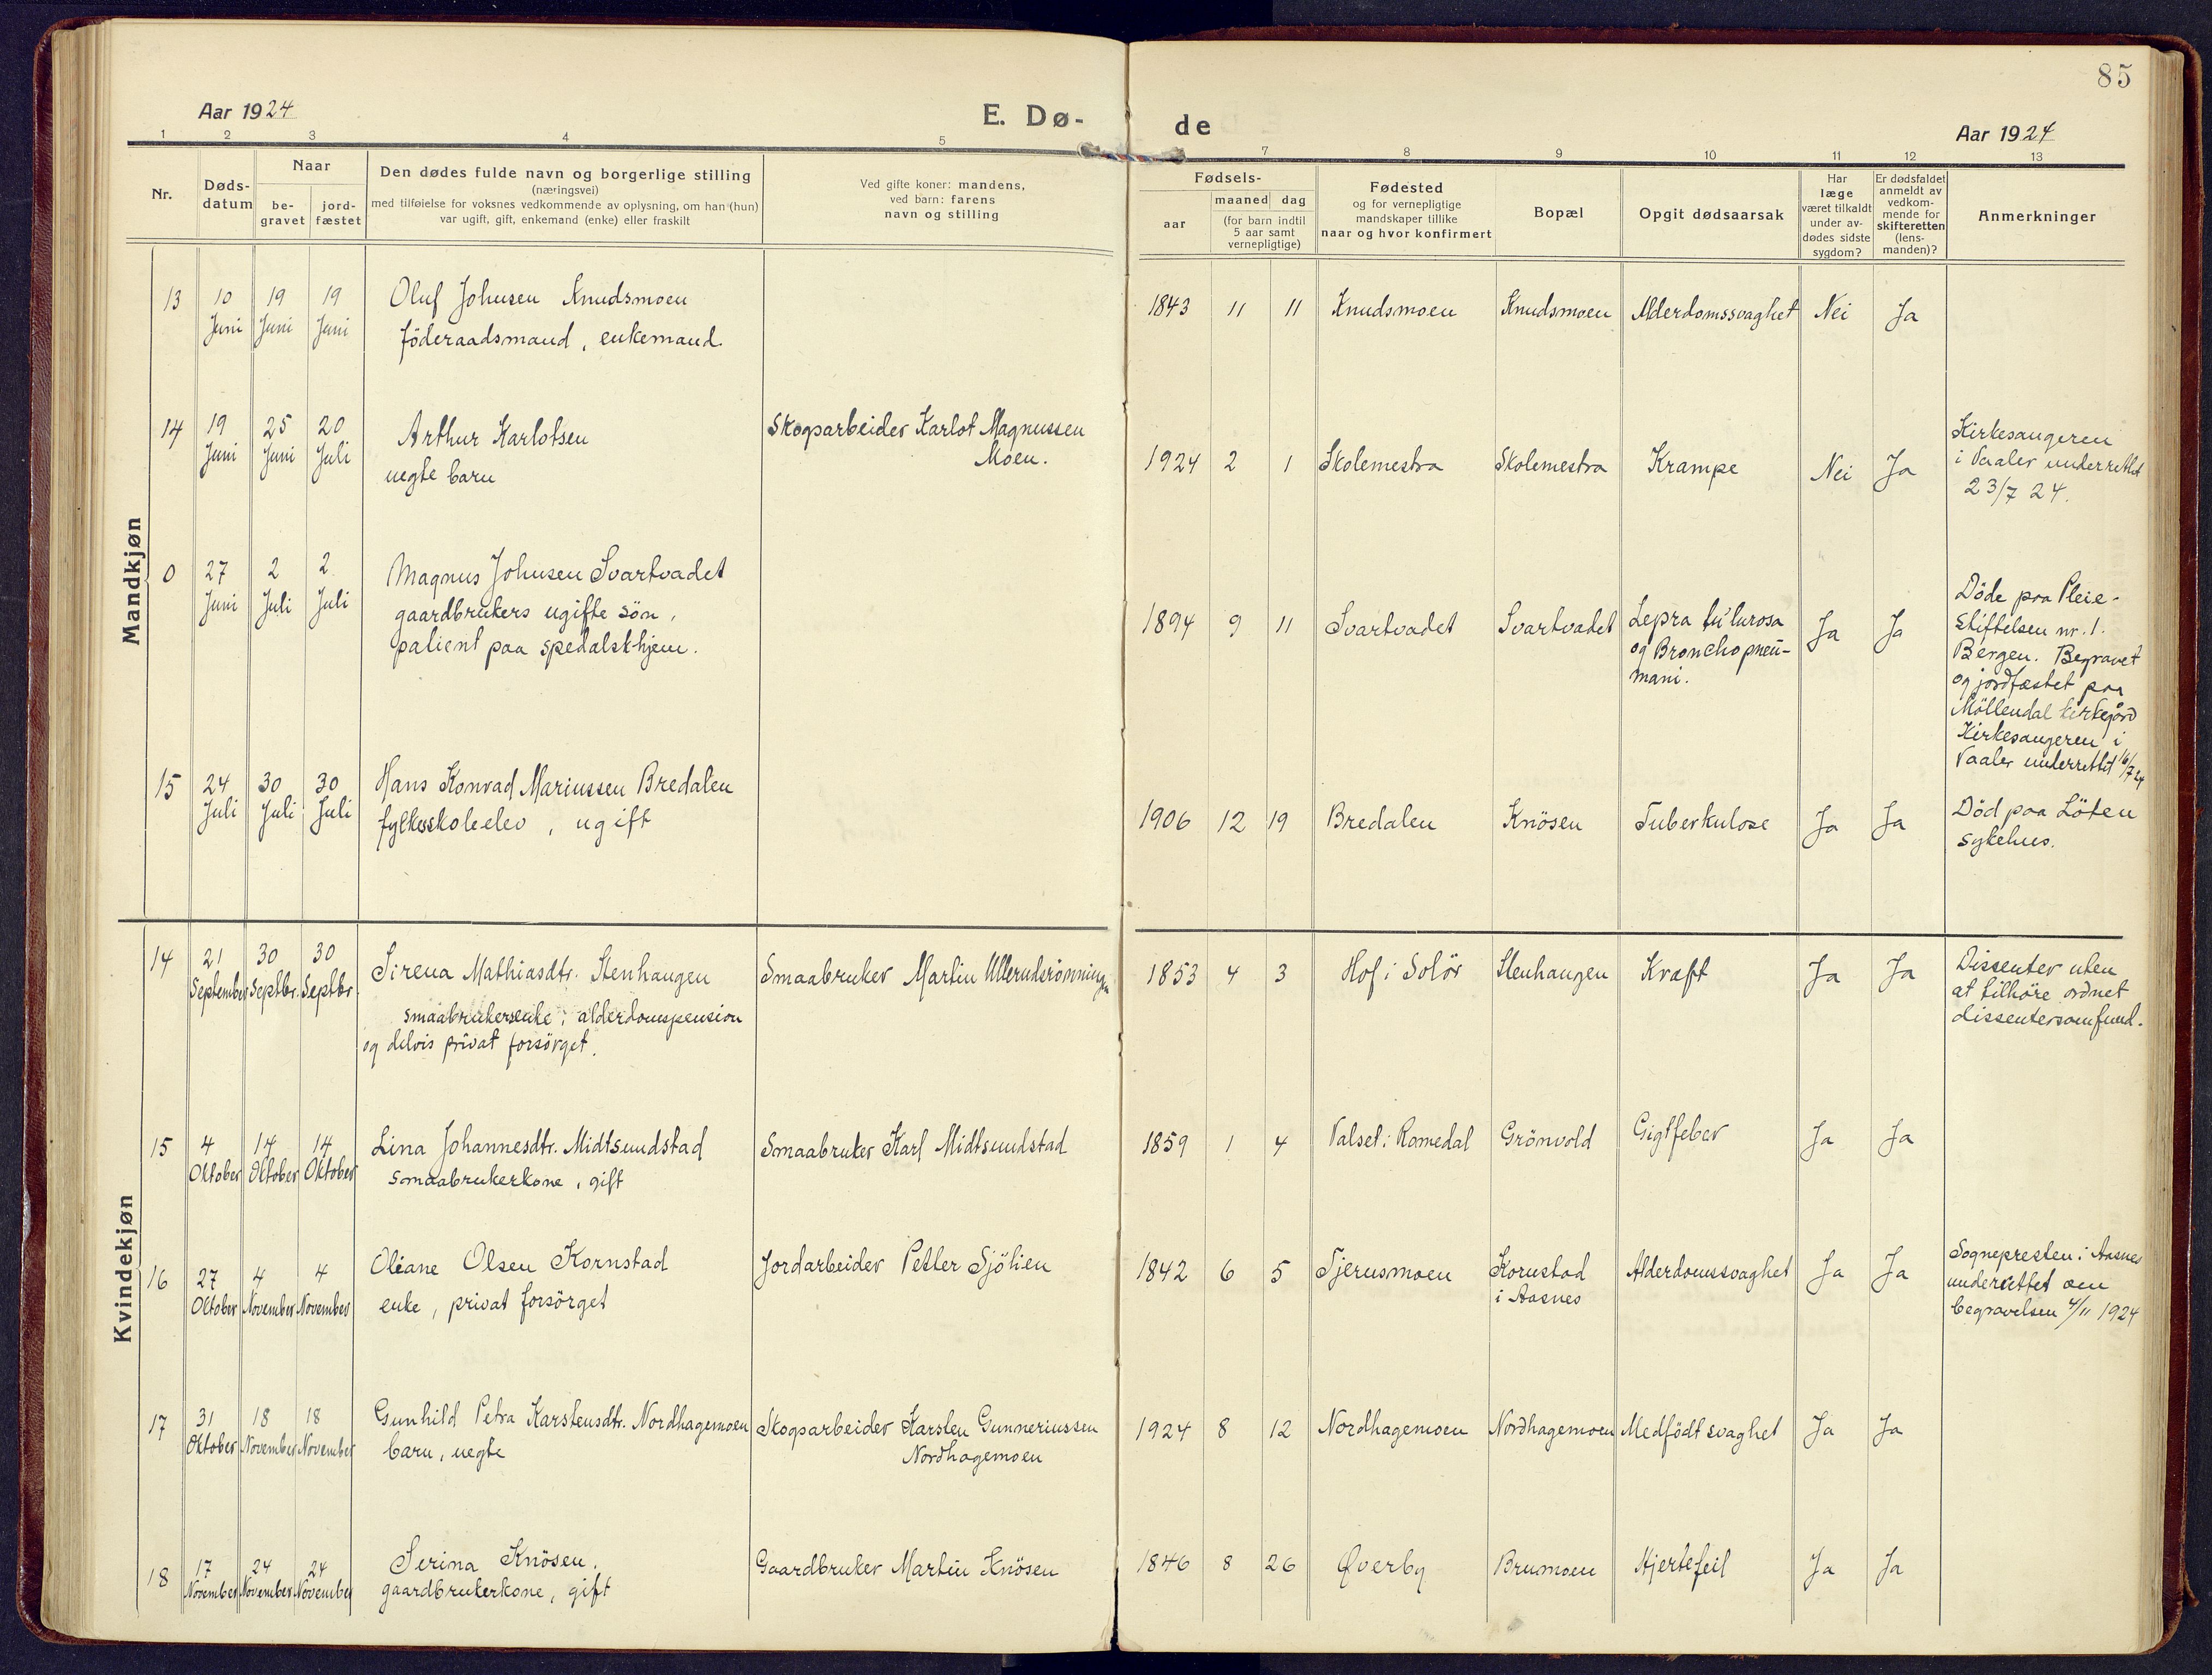 85
Aar 1924 E. Dø- de Aar 1924
1 2 3 4 5 7 8 9 10 11 12 13
Nr.
Døds-
datum
Naar
be-
gravet
jord-
fæstet
Den dødes fulde navn og borgerlige stilling
(næringsvei)
med tilføielse for voksnes vedkommende av oplysning, om han (hun)
var ugift, gift, enkemand (enke) eller fraskilt
Ved gifte koner: mandens,
ved barn: farens
navn og stilling
Fødsels-
aar
maaned dag
(for barn indtil
5 aar samt
vernepligtige)
Fødested
og for vernepligtige
mandskaper tillike
naar og hvor konfirmert
Bopæl
Opgit dødsaarsak
Har
læge
været tilkaldt
under av-
dødes sidste
sygdom?
Er dødsfaldet
anmeldt av
vedkom-
mende for
skifteretten
(lens-
manden)?
Anmerkninger
Mandkjøn
13
10
Juni
19
Juni
19
Juni
Oluf Johnsen Knudsmoen
föderaadsmand, enkemand.
1843 11 11 Knudsmoen Knudsmoen Alderdomssvaghet Nei Ja
14
19
Juni
25
Juni
20
Juli
Arthur Karlotsen
uegte barn
Skogsarbeider Karlot Magnussen
Moen.
1924 2 1 Skolemestra Skolemestra Krampe Nei Ja
Kirkesangeren
i Vaaler underrettet
23/7 24.
0
27
Juni
2
Juli
2
Juli
Magnus Johnsen Svartvadet
gaardbrukers ugifte sön,
patient paa spedalskhjem.
1894 9 11 Svartvadet Svartvadet
Lepra
og Bronchopneu-
mani.
Ja Ja
Döde paa Pleie-
stiftelsen nr. 1.
Bergen. Begravet
og jordfæstet paa
Möllendal kirkegård
Kirkesangeren i
Vaaler underrettet 16/7 24
15
24
Juli
30
Juli
30
Juli
Hans Konrad Mariussen Bredalen
fylkesskoleelev, ugift
1906 12 19 Bredalen Knösen Tuberkulose Ja Ja
Död paa Löten
sykehus.
Kvindekjøn
14
21
September
30
Septbr.
30
Septbr.
Sirena Mathiasdtr. Stenhaugen
smaabrukersenke, alderdomspension
og delvis privat forsörget.
Smaabruker Martin Ullerudsrönningen
1853 4 3 Hof i Solör Stenhaugen Kræft Ja Ja
Dissenter uten
at tilhöre ordnet
dissentersamfund.
15
4
Oktober
14
Oktober
14
Oktober
Lina Johannesdtr. Midtsundstad
Smaabrukerkone, gift
Smaabruker Karl Midtsundstad
1859 1 4 Valset i Romedal Grönvold Gigtfeber Ja Ja
16
27
Oktober
4
November
4
November
Oliane Olsen Kornstad
enke, privat forsörget
Jordarbeider Petter Sjölien
1842 6 5 Tjernsmoen
Kornstad
i Aasnes
Alderdomssvaghet Ja Ja
Sognepresten i Aasnes
underrettet om
begravelsen 4/11 1924
17
31
Oktober
18
November
18
November
Gunhild Petra Karstensdtr. Nordhagemoen
barn, uegte
Skogsarbeider Karsten Gunneriussen
Nordhagemoen
1924 8 12 Nordhagemoen Nordhagemoen Medfödt svaghet Ja Ja
18
17
November
24
November
24
November
Serina Knösen.
gaardbrukerkone, gift
Gaardbruker Martin Knösen
1846 8 26 Øverby Brumoen Hjertefeil Ja Ja